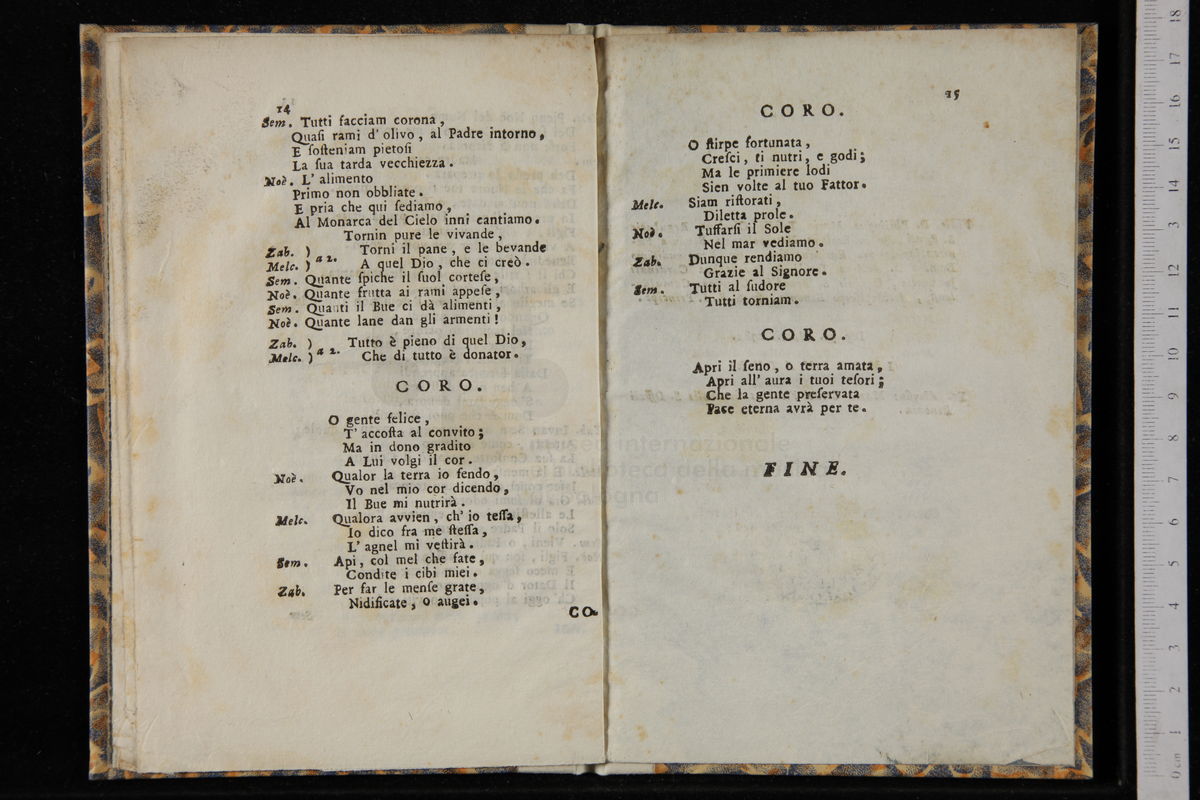 14
Sem. Tutti facciam corona,
Quaſi rami d' olivo, al Padre intorno,
E ſoſteniam pietoſi
La ſua tarda vecchiezza.
Noè. L' alimento
Primo non obbliate.
E pria che qui ſediamo,
Al Monarca del Cielo inni cantiamo.
Tornin pure le vivande,
Zab. ) a 2. Torni il pane, e le bevande
Melc. ) A quel Dio, che ci creò.
Sem. Quante ſpiche il ſuol corteſe,
Noè. Quante frutta ai rami appeſe,
Sem. Quanti il Bue ci dà alimenti,
Noè. Quante lane dan gli armenti!
Zab. ) a 2. Tutto è pieno di quel Dio,
Melc. ) Che di tutto è donator.
CORO.
O gente felice,
T' accoſta al convito;
Ma in dono gradito
A Lui volgi il cor.
Noè. Qualor la terra io fendo,
Vo nel mio cor dicendo,
Il Bue mi nutrirà.
Melc. Qualora avvien, ch' io teſſa,
Io dico fra me ſteſſa,
L' agnel mi veſtirà.
Sem. Api, col mel che fate,
Condite i cibi miei.
Zab. Per far le menſe grate,
Nidificate, o augei.
CO-
15
CORO.
O ſtirpe fortunata,
Creſci, ti nutri, e godi;
Ma le primiere lodi
Sien volte al tuo Fattor.
Melc. Siam riſtorati,
Diletta prole.
Noè. Tuffarſi il Sole
Nel mar vediamo.
Zab. Dunque rendiamo
Grazie al Signore.
Sem. Tutti al ſudore
Tutti torniam.
CORO.
Apri il ſeno, o terra amata,
Apri all' aura i tuoi teſori;
Che la gente preſervata
Pace eterna avrà per te.
FINE.